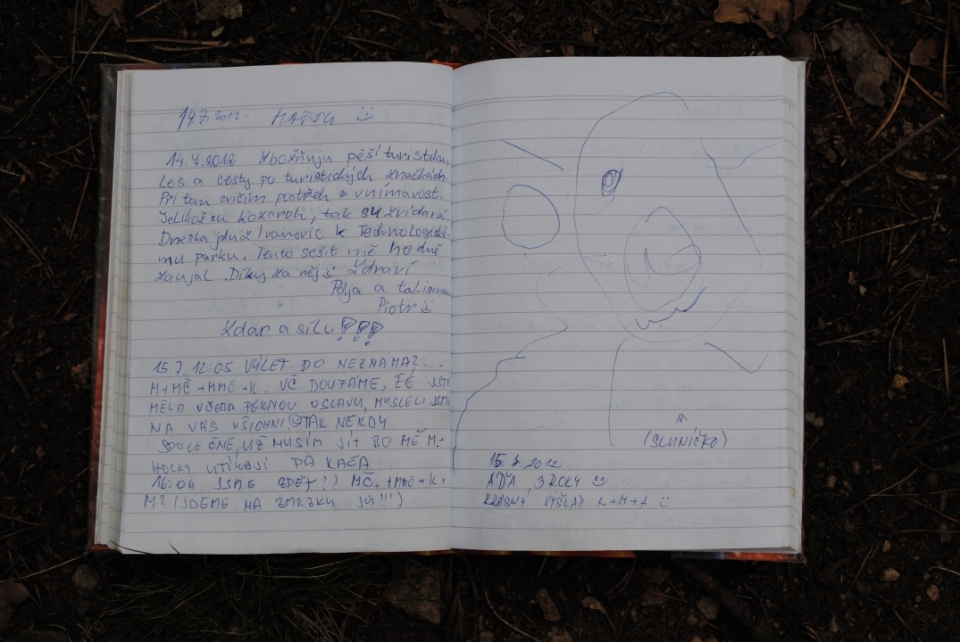 14.7.2012 MATSU
14.7.2012 Zbožňuju pěší turistiku,
Les a cesty po turistických značkách.
Při tom cvičím postřeh a vnímavost.
Jelikož su kozoroh, tak su zvídavá
Dneska jdu z Ivanovic k Technologické-
mu parku. Tento sešit mě hodně
zaujal Díky za něj Zdraví
a talisman
Piotr
Zdar a sílu !!!
15.7. 12:05 VÝLET DO NEZNÁMA?...
M+MČ+MMČ+K. VČ DOUFÁME, ŽE JSTE
MĚLA VČERA PĚKNOU OSLAVU, MYSLELI JSME
NA VÁS VŠICHNI TAK NĚKDY
SPOLEČNĚ, UŽ MUSÍM JÍT BO MĚ
HOLKY UTÍKAJÍ PA KAČA
16:04 JSME ZPĚT!) MČ+MMČ+K+
M? (JDEME NA ZMRZKU JŮ!!!)
(SLUNÍČKO)
15.7.2012
AĎA, 3 ROKY
KRÁSNÝ VÝŠLAP K+M+A